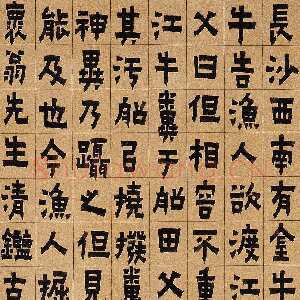 長沙西南有金牛
牛告漁人欲渡江
父曰但相容不重
江牛糞于船田父
其汚船㠯撓撥糞
神異乃躡之但見
能及也今漁人掘
翁先生清鑑古